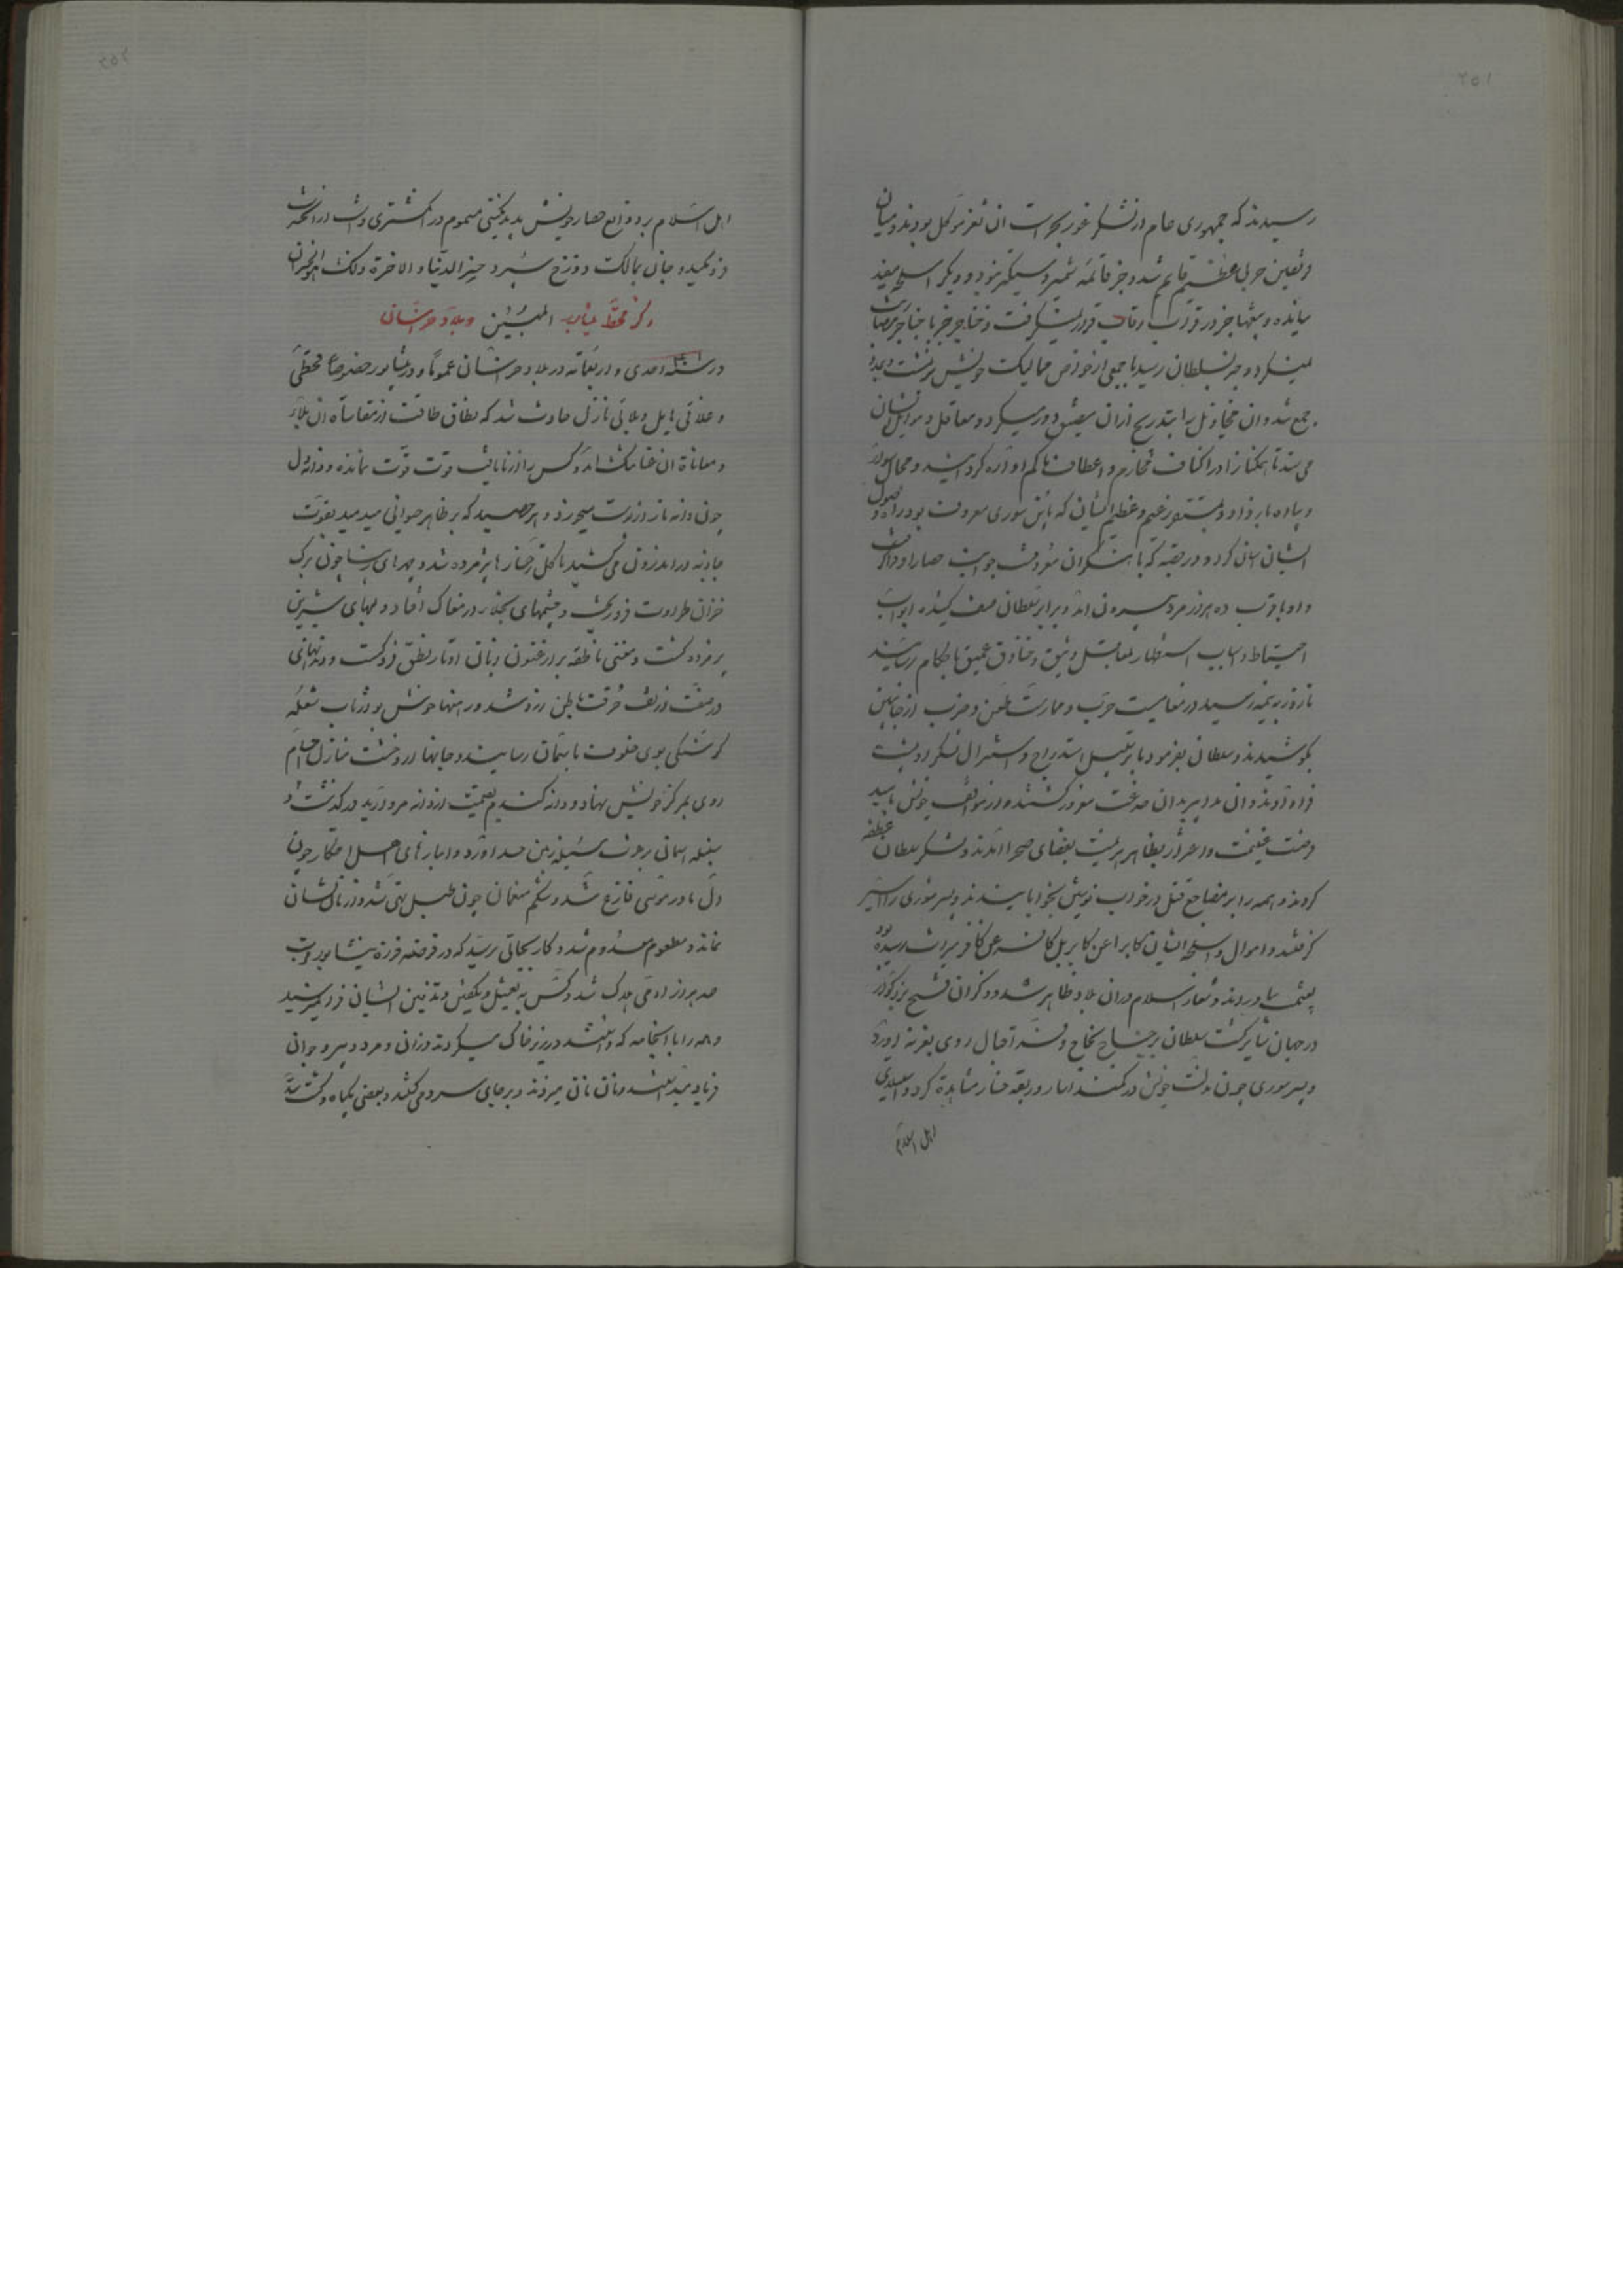 ۲۵۱
رسیدند که جمهوری عام از لشکر غور بحراست آن ثغر موکل بودند و میان
فریقین حربی عظیم قایم شد و جز قائمه شمشیر دستگیر نبود و دیگر اسلحه مفید
نیامد و تیغها جز در قراب رقاب قرار نمیگرفت و خناجر جز با حناجر مصافات
نمیکرد و خبر بسلطان رسید با جمعی از خواص ممالیک خویش برنشست و بمدد
جمع شد و آن مخاذیل را بتدریج از آن مضیق دور میکرد و معاقل و موایل ایشان
می ستد تا همکنانرا در اکناف مخارم و اعطاف آواره کردانیدند و مجال سوار
و پیاده بازداد و بمستقر زعیم و عظیم ایشان که بابن سوری معروف بود راه وصول
ایشان آسان کرد و در قصبه که باهنکران معروفست جوانب حصار او فرا کرفت
و او با قرب ده هزار مرد بیرون آمد و برابر سلطان صف کشیده ابواب
احتیاط و اسباب استظهار بمعاقل وثیق و خنادق عمیق باحکام رسانیدند
تا روز به نیمه رسید در مقاسات حرب و ممارست طعن و ضرب از جانبین
بکوشیدند و سلطان بفرمود تا بر سبیل استدراج و استنزال لشکر او پشت
فرا دادند و آن مدابیر بدان خدعت مغرور کشتند و از مواقف خویش بامید
فرصت غنیمت و اغترار بظاهر هزیمت بفضای صحرا آمدند و لشکر سلطان عطفه
کردند و همه را بر مضاجع قتل در خواب نوشین بخوابانیدند و پسر سوری را اسیر
کرفتند و اموال و اسلحه ایشان کابرا عن کابر بل کافر عن کافر میراث رسیده بود
بغنیمت بیاوردند و شعار اسلام در آن بلاد ظاهر شد و ذکر آن فتح بزرکوار
در جهان سایر کشت سلطان بر جناح نجاح و اقبال روی بغزنه آورد
و پسر سوری چون مذلت خویش در کمند اسار و ربقه خسار مشاهده کرد و استیلای
اهل اسلام
۲۵۲
اهل اسلام بر ودایع حصار خویش بدید نکینی مسموم در انکشتری داشت از آنجا
فرو مکید و جان بمالک دوزخ سپرد خسر الدنیا و الاخرة ذلک هو الخسران
المبین ذکر قحط نیشابور و بلاد خراسان
در سنه ۴۰۱ احدی و اربعمائه در بلاد خراسان عموما و در نیشابور خصوصا قحطی
و غلائی هایل و بلائی نازل حادث شد که نطاق طاقت از مقاسات آن بلا
و معاناة آن عنا تنک آمد و کس را از نایافت قوت قوت نمانده و از هول
چون دانه نار از پوست میخورد و هر حصید که بر ظاهر حیوانی میدمید بقوت
جاذبه در اندرون می کشید تا کل رخسارها پژمرده شد و بهرای زیبا چون برک
خزان طراوت فرو ریخت و چشمهای نجلا در مغاک افتاد و لبهای شیرین
پژمرده کشت و مغنی ناطقه بر ارغنون زبانی اوتار نطق فرو کسست و دندانهای
از تف حرقت باطن زرد شد و نفسها خوش بوی از تاب شعله
کرسنکی بوی خلوف بآسمان رسانیدند و جانها از وحشت منازل اجسام
روی بمرکز خویش نهاد و دانه کندم بقیمت از دانه مروارید درکذشت و
سنبله آسمانی بر سنبله زمین حسد آورد و انبارهای اهل احتکار چون
دل مادر موسی فارغ شد و شکم منعمان چون طبل تهی شد و از نان نشان
نماند و مطعوم معدوم شد و کار بجائی رسید که در عرصه نیشابور قریب
صد هزار آدمی هلاک شد و کس به تغسیل و تکفین و تدفین ایشان فرا نمیرسید
و همه را با آن جامه که داشتند در زیر خاک میکردند و زنان و مرد و پیر و جوان
فریاد میداشتند و نان نان میزدند و بر جای سرد می کشتند و بعضی بکیاه و کشت